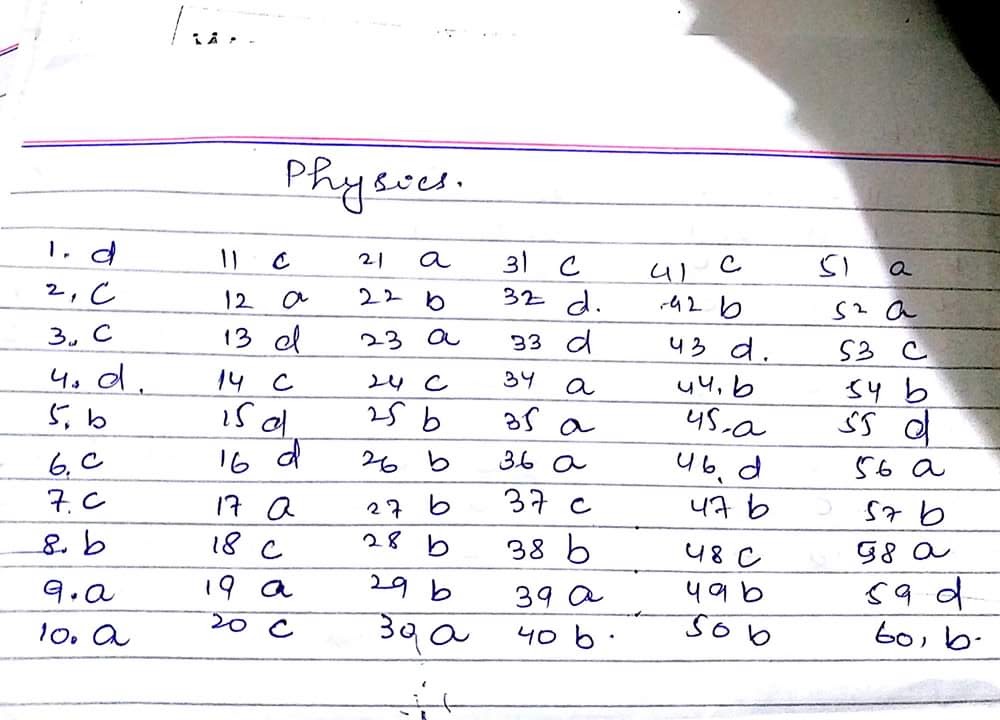 Physics.
1. d 11 c 21 a 31 c 41 c 51 a
2, C 12 a 22 b 32 d. 42 b 52 a
3. C 13 d 23 a 33 d 43 d. 53 c
4. d. 14 c 24 c 34 a 44. b 54 b
5. b 15 d 25 b 35 a 45-a 55 d
6. c 16 d 26 b 36 a 46. d 56 a
7. c 17 a 27 b 37 c 47 b 57 b
8. b 18 c 28 b 38 b 48 c 58 a
9. a 19 a 29 b 39 a 49 b 59 d
10. a 20 c 30 a 40 b. 50 b 60, b.